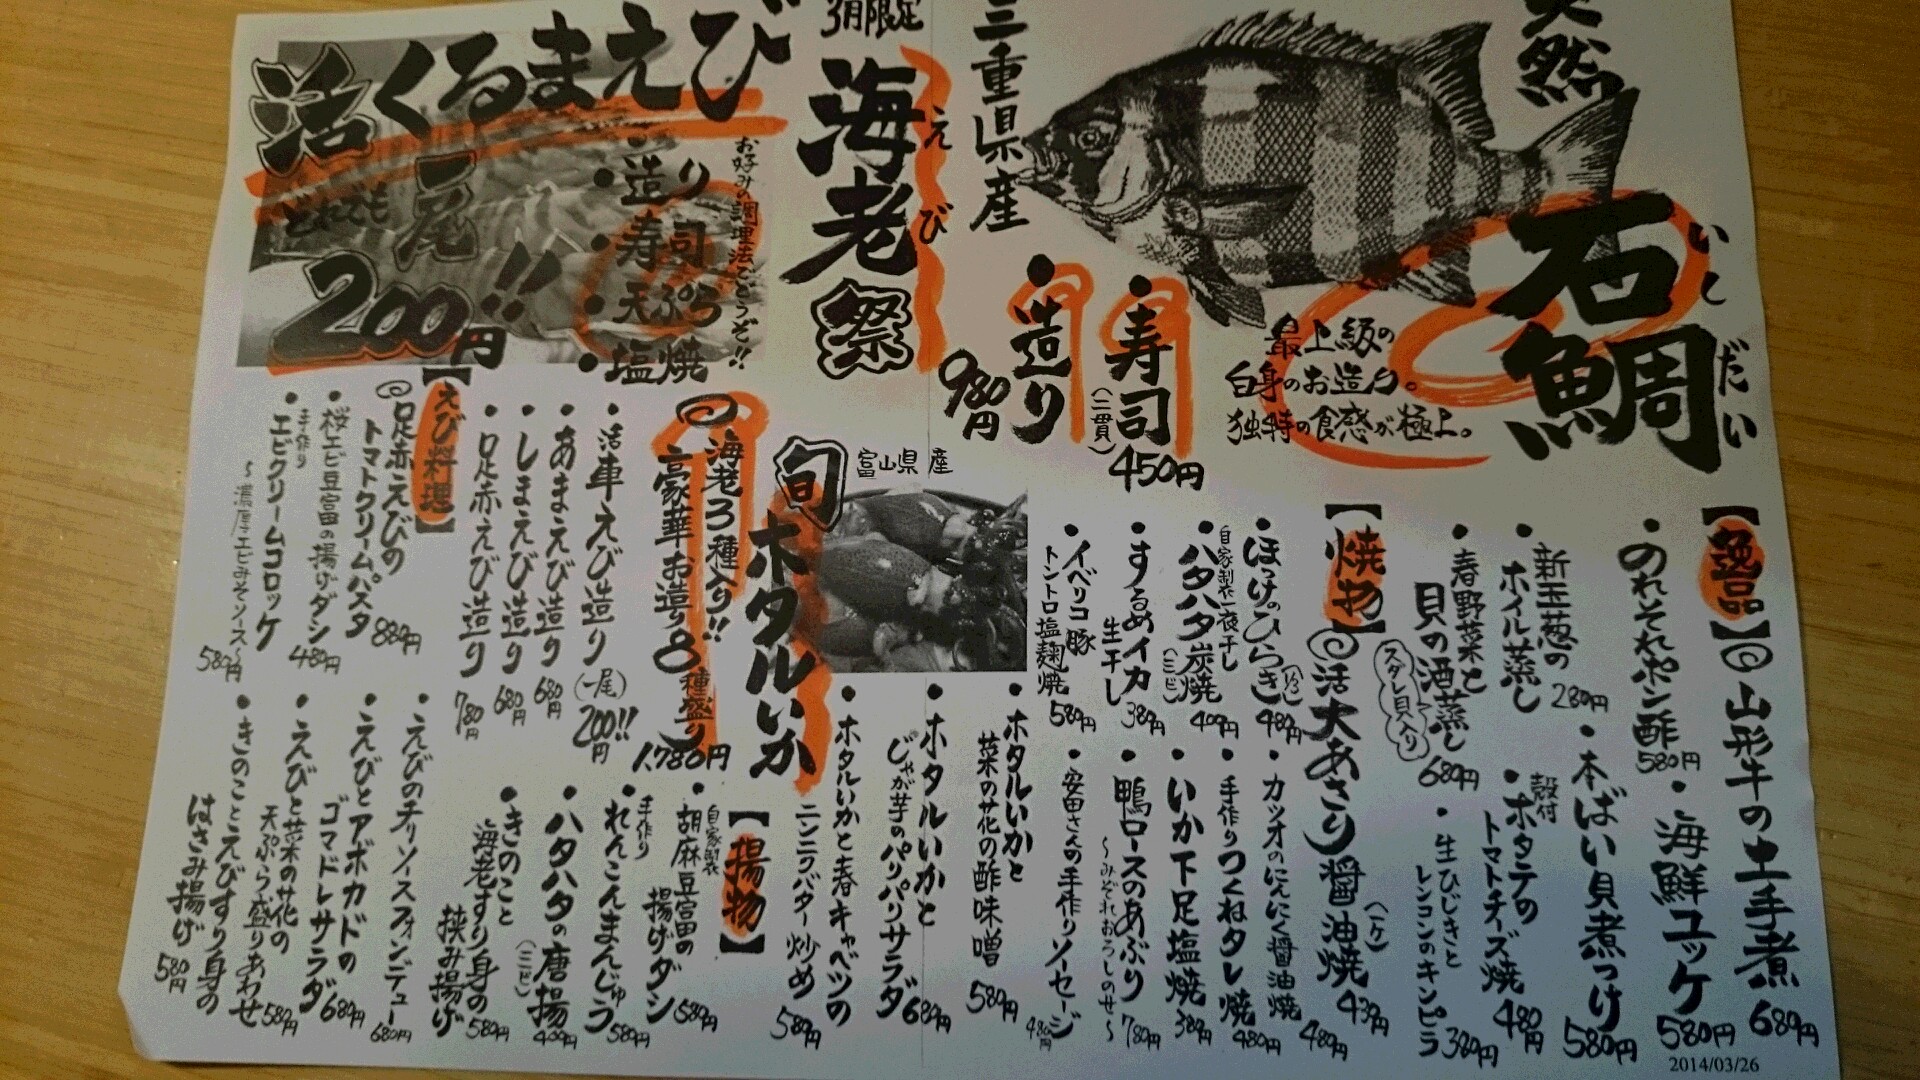 天然
石鯛
いしだい
最上級の
白身のお造り。
独特の食感が極上。
三重県産
・寿司
(二貫)
450円
・造り
980円
3月限定
海老祭
えび
活くるまえび
どれでも
一尾
200円!!
お好みの調理法でどうぞ!!
・造り
・寿司
・天ぷら
・塩焼
【逸品】
山形牛の土手煮 680円
・のれそれポン酢 580円
・海鮮ユッケ 580円
・本ばい貝煮つけ 580円
・新玉葱の
ホイル蒸し 280円
殻付
・ホタテの
トマトチーズ焼 480円
・春野菜と
貝の酒蒸し 680円
スダレ貝入り
・生ひじきと
レンコンのキンピラ 380円
【焼物】
活大あさり醤油焼 (一ケ) 430円
・ほっけのひらき (1/3) 480円
・カツオのにんにく醤油焼 480円
自家製一夜干し
・ハタハタ炭焼 (二ピ) 400円
・手作りつくねタレ焼 480円
・するめイカ
生干し 380円
・いか下足塩焼 380円
・イベリコ豚
トントロ塩麹焼 580円
・鴨ロースのあぶり 780円
〜みぞれおろしのせ〜
・安田さんの手作りソーセージ 480円
旬
ホタルいか
富山県産
・ホタルいかと
菜の花の酢味噌 580円
・ホタルいかと
じゃが芋のパリパリサラダ 680円
・ホタルいかと春キャベツの
ニンニクバター炒め 580円
海老3種入り!!
豪華お造り8種盛り
1,780円
・活車えび造り (一尾) 200円!!
・あまえび造り 680円
・しまえび造り 680円
・足赤えび造り 780円
【えび料理】
足赤えびの
トマトクリームパスタ 880円
・桜エビ豆富の揚げダシ 480円
手作り
・エビクリームコロッケ 580円
〜濃厚エビみそソース〜
・えびのチリソースフォンデュー 680円
・えびとアボカドの
ゴマドレサラダ 680円
・えびと菜の花の
天ぷら盛りあわせ 580円
・きのことえびすり身の
はさみ揚げ 580円
【揚物】
自家製
・胡麻豆富の
揚げダシ 580円
手作り
・れんこんまんじゅう 580円
・ハタハタの唐揚 (二ピ) 400円
・きのこと
海老すり身の
挟み揚げ 580円
2014/03/26